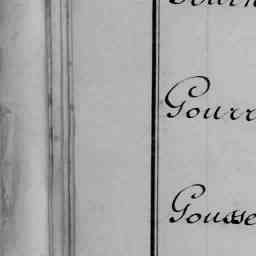 Gourr
Gousse